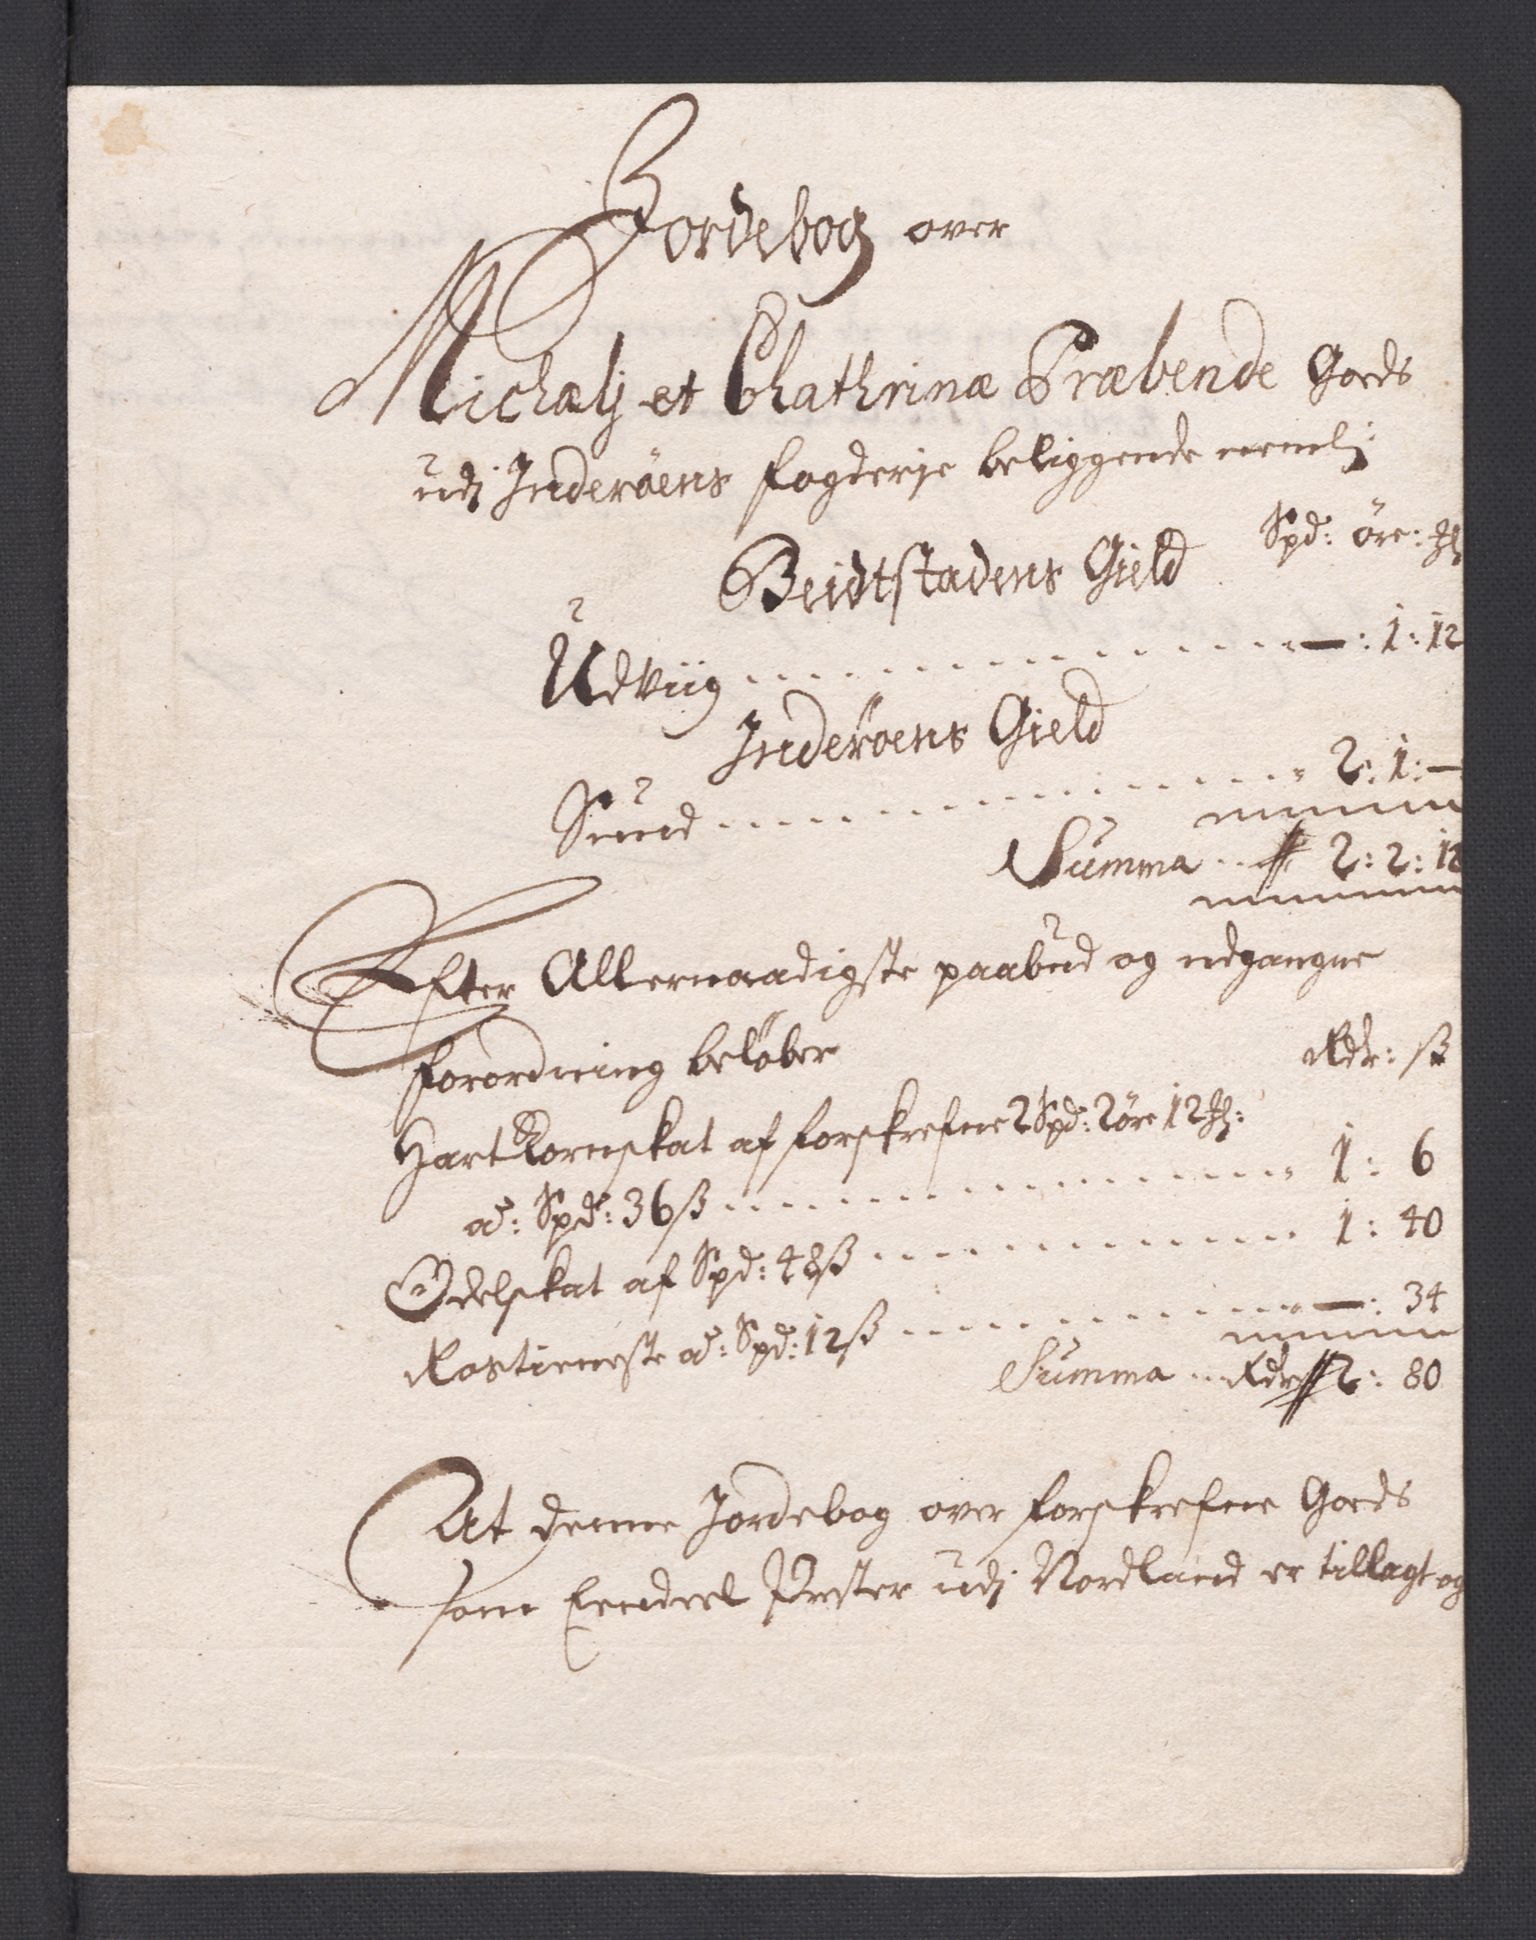 Jordebog over
Michælij et Chathrinæ Præbende Goeds
udj Inderöens fogderje beliggende nemlig
Spd: öre:
Beidtstadens Gield
Udviig - - - - - - - - - - - - - —: 1: 12
Inderöens Gield
Sund - - - - - - - - - - - - - 2: 1: —
Summa - - 2: 2: 12
Efter Allernaadigste paabud og udgangne
forordning belöber
Rdr: ß
HartKornskat af forskrefne 2 Spd: 2 öre 12
a: Spd: 36 ß - - - - - - - - - - - - - 1: 6
Odelskat af Spd: 48 ß - - - - - - - - - 1: 40
Rostieneste a: Spd: 12 ß - - - - - - - - —: 34
Summa - - Rdr 2: 80
At denne Jordebog over forskrefne Goeds
som Eendeel Prester udj Nordland er tillagt og